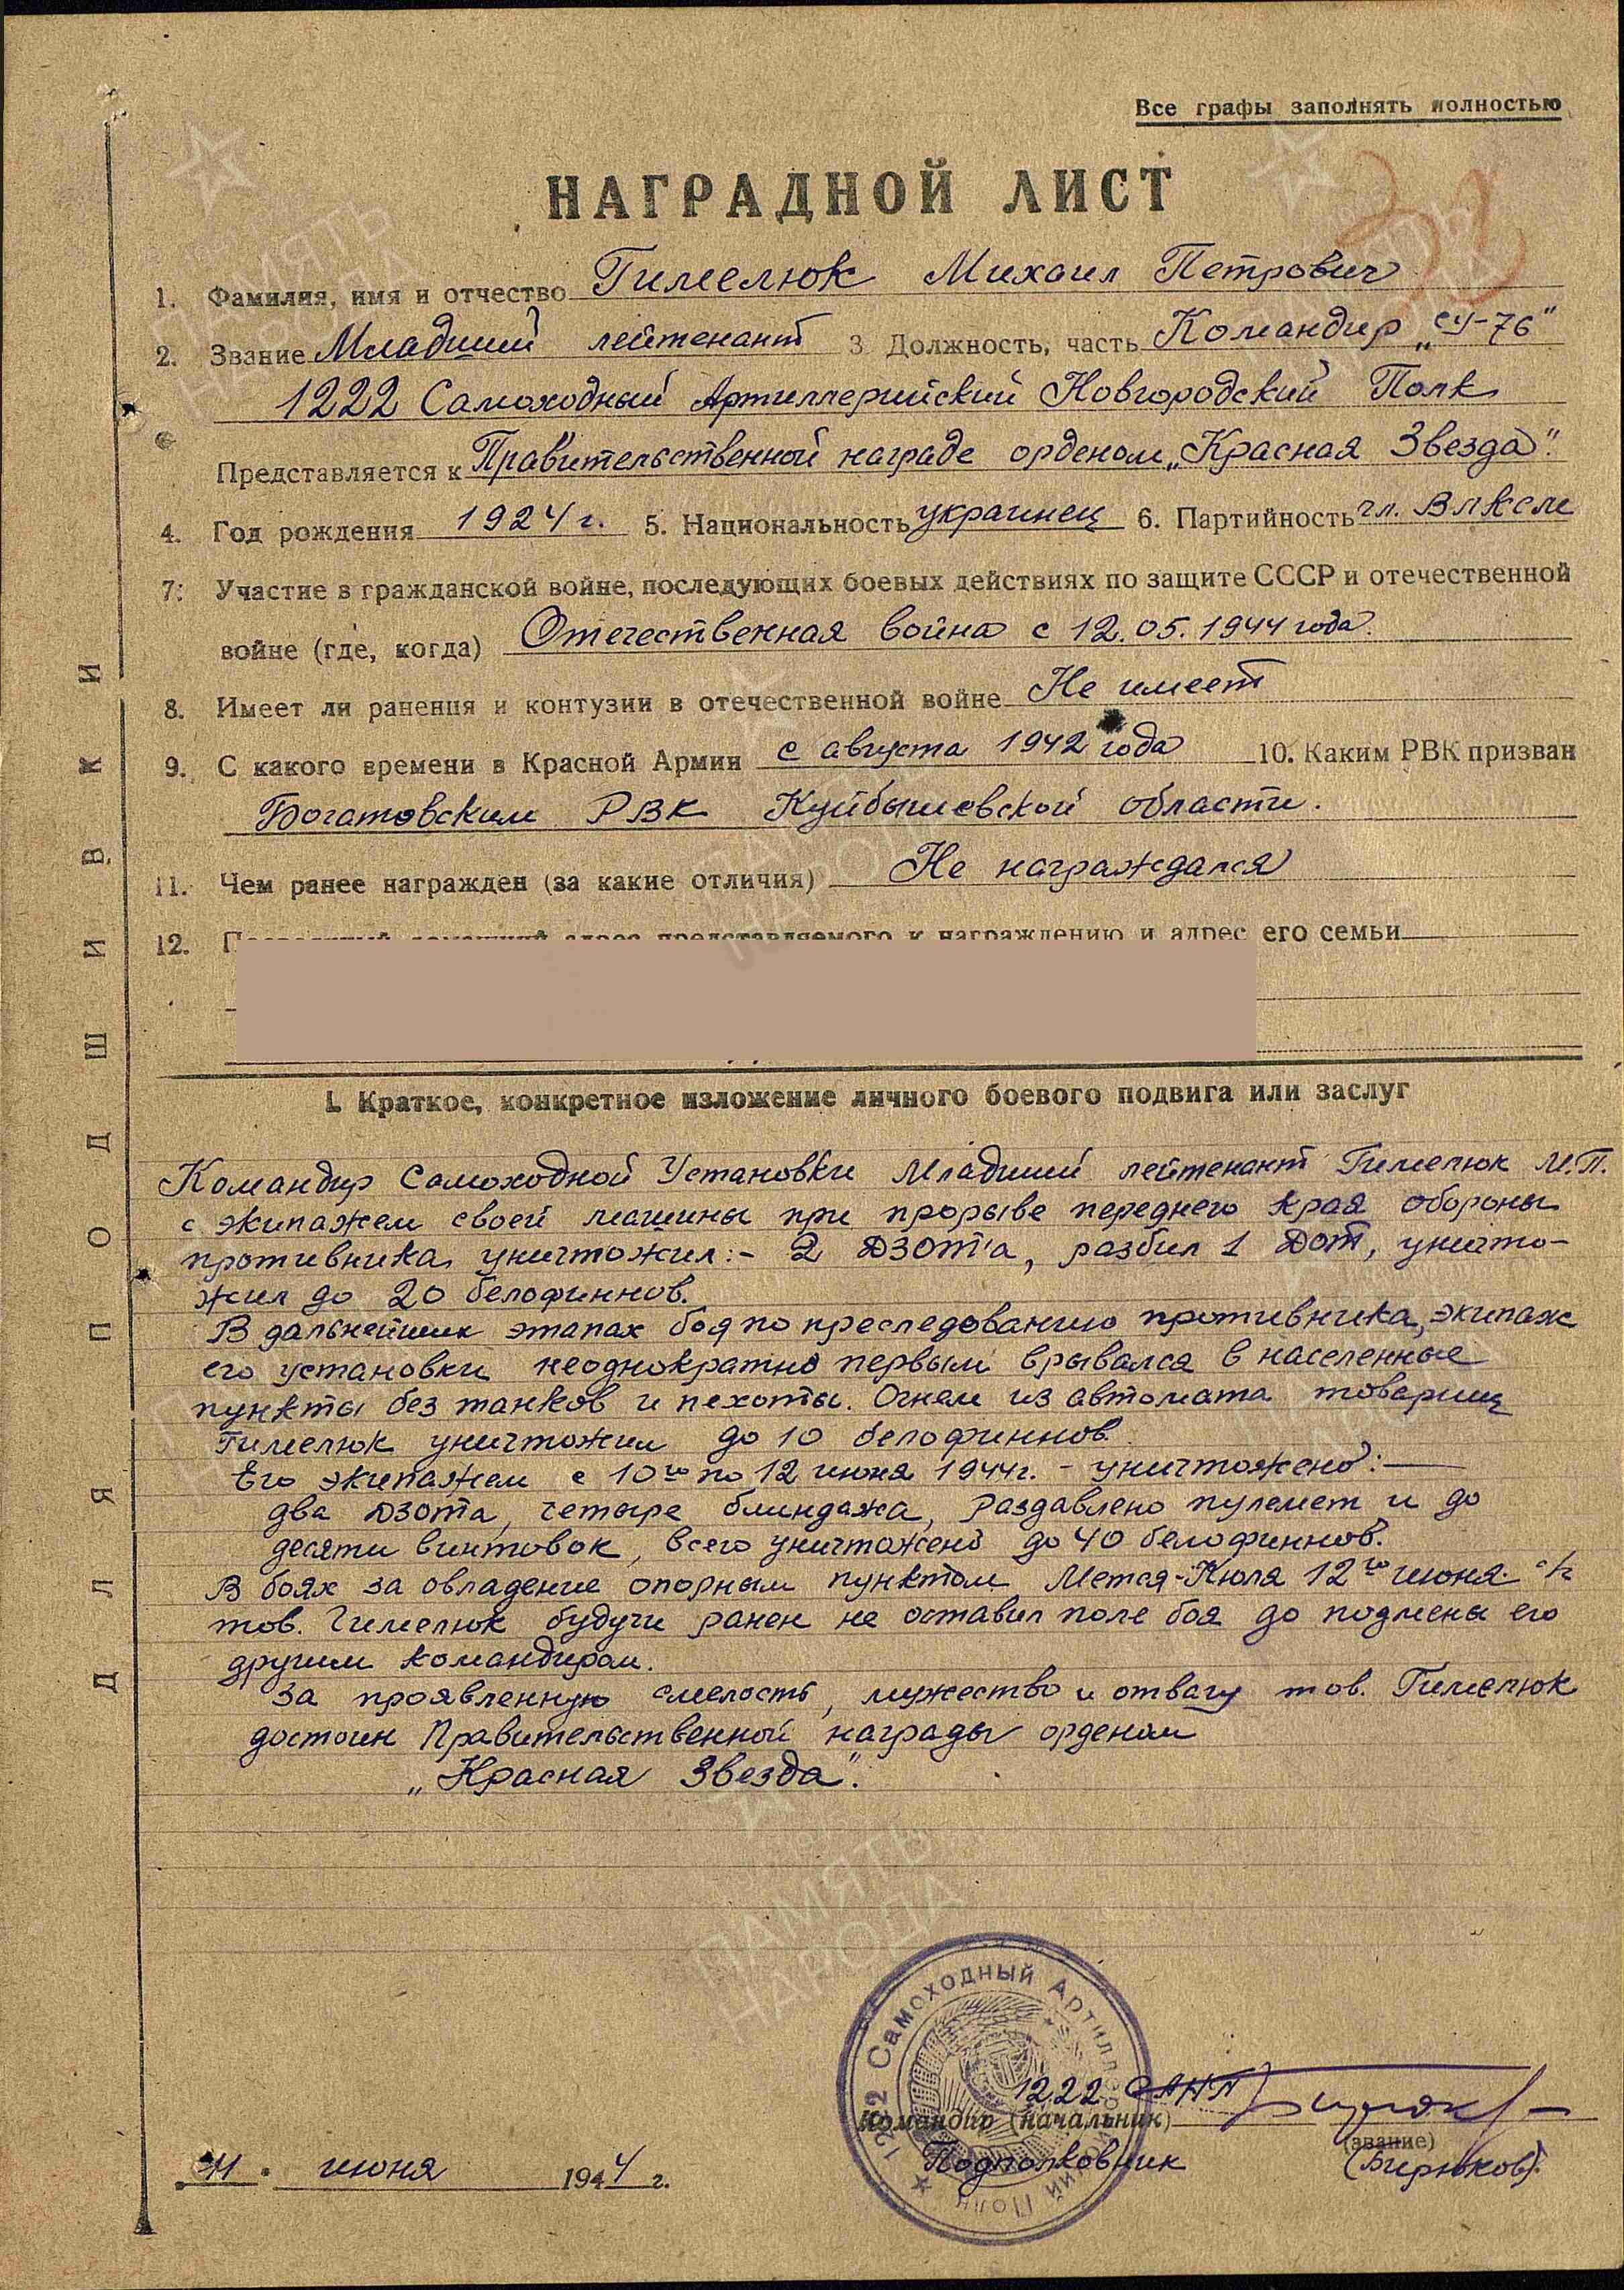 Все графы заполнять полностью
НАГРАДНОЙ ЛИСТ
1. Фамилия, имя и отчество Гимелюк Михаил Петрович
2. Звание Младший лейтенант 3 Должность, часть Командир „СУ-76"
1222 Самоходный Артиллерийский Новгородский Полк
Представляется к Правительственной награде орденом „Красная Звезда".
4. Год рождения 1924 г. 5. Национальность украинец 6. Партийность чл. ВЛКСМ
7. Участие в гражданской войне, последующих боевых действиях по защите СССР и отечественной
войне (где, когда) Отечественная война с 12.05.1944 года.
8. Имеет ли ранения и контузии в отечественной войне Не имеет
9. С какого времени в Красной Армии с августа 1942 года 10. Каким РВК призван
Богатовским РВК Куйбышевской области.
11. Чем ранее награжден (за какие отличия) Не награждался
12. представляемого к награждению и адрес его семьи
I. Краткое, конкретное изложение личного боевого подвига или заслуг
Командир Самоходной Установки Младший лейтенант Гимелюк М.П.
с экипажем своей машины при прорыве переднего края обороны
противника уничтожил:- 2 ДЗОТ'а, разбил 1 ДОТ, уничто-
жил до 20 белофиннов.
В дальнейших этапах боя по преследованию противника, экипаж
его установки неоднократно первым врывался в населенные
пункты без танков и пехоты. Огнем из автомата товарищ
Гимелюк уничтожил до 10 белофиннов.
Его экипажем с 10го по 12 июня 1944г. - уничтожено:-
два ДЗОТа, четыре блиндажа, раздавлено пулемет и до
десяти винтовок, всего уничтожено до 40 белофиннов.
В боях за овладение опорным пунктом Мется-Кюля 12го июня с/г
тов. Гимелюк будучи ранен не оставил поле боя до подмены его
другим командиром.
За проявленную смелость, мужество и отвагу тов. Гимелюк
достоин Правительственной награды орденом
„Красная Звезда".
1222 САНП
Командир (начальник)
(звание)
Подполковник (Бирюков).
июня 1944 г.
1222 Самоходный Артиллерийский Полк
ДЛЯ ПОДШИВКИ
ПАМЯТЬ НАРОДА